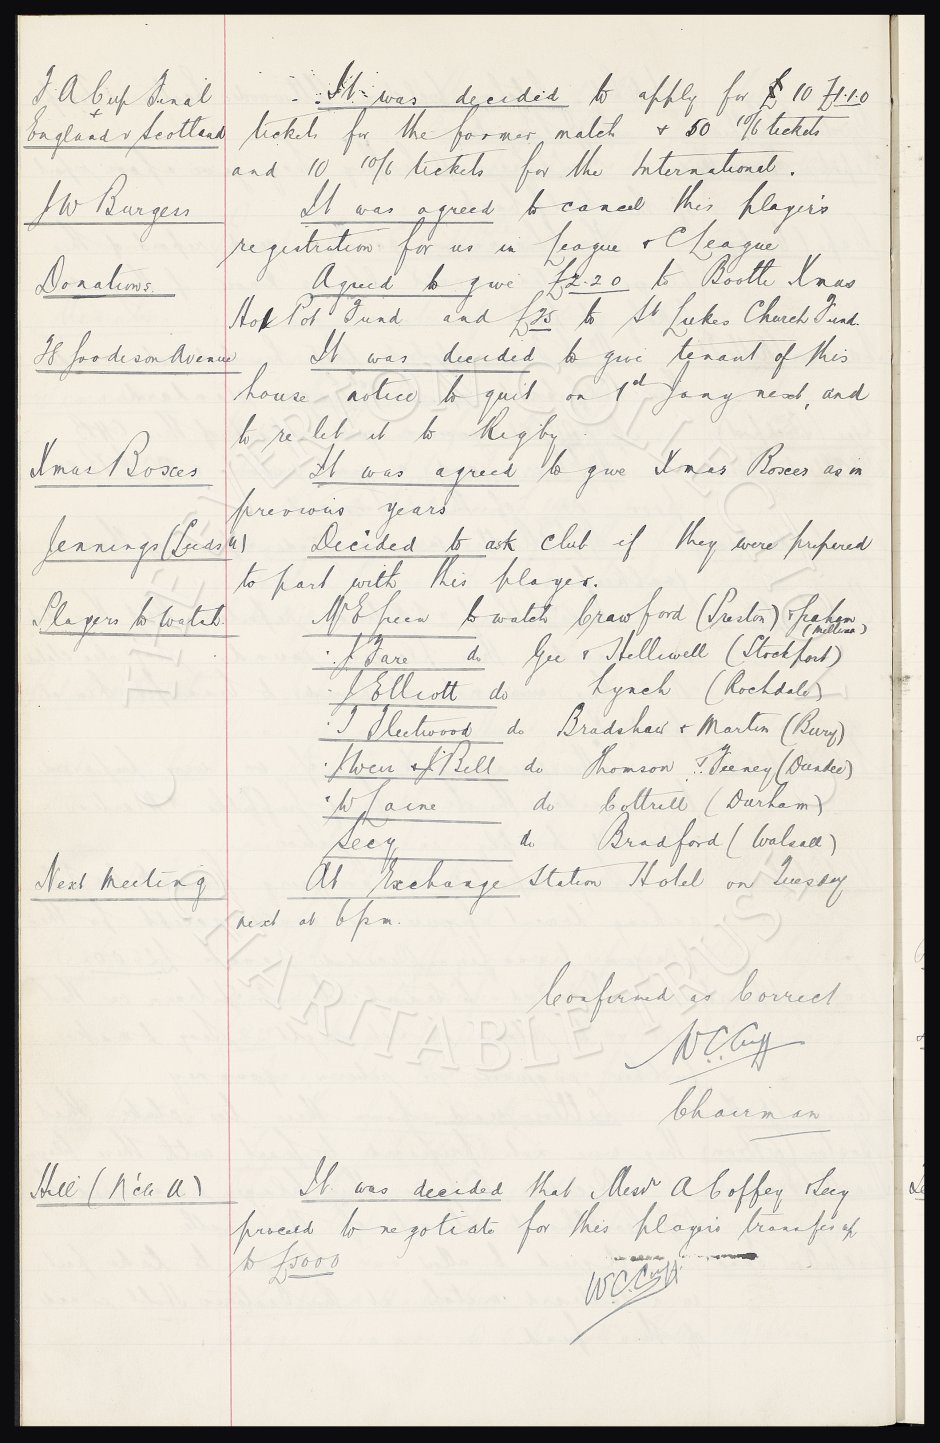 F A Cup Final It was decided to apply for £ 10 £1.1.0
England v Scotland tickets for the former match & 50 10/6 tickets
and 10 10/6 tickets for the International.
J W Burgess It was agreed to cancel this player's
registration for us in League & C League
Donations. Agreed to give £2.2.0 to Bootle Xmas
Hot Pot Fund and £25 to St Lukes Church Fund.
38 Goodison Avenue It was decided to give tenant of this
house notice to quit on 1st Jany next, and
to re let it to Rigby
Xmas Boxes It was agreed to give Xmas Boxes as in
previous years
Jennings (Leeds U) Decided to ask club if they were prepared
to part with this player.
Players to Watch. to watch Crawford (Preston) & Graham
(Millwall)
J Fare do Gee & Helliwell (Stockport)
J Elliott do Lynch (Rochdale)
T Fleetwood do Bradshaw & Martin (Bury)
J Weir & J Bell do Thomson & Feeney (Dundee)
W Caine do Cottrill (Durham)
Secy do Bradford (Walsall)
Next Meeting At Exchange Station Hotel on Tuesday
next at 6 pm.
Confirmed as Correct
W C Cuff
Chairman
Hill (N'cle U) It was decided that Messrs A Coffey & Secy
proceed to negotiate for this player's transfer up
to £5000
W.C. Cuff
THE EVERTON COLLECTION
CHARITABLE TRUST